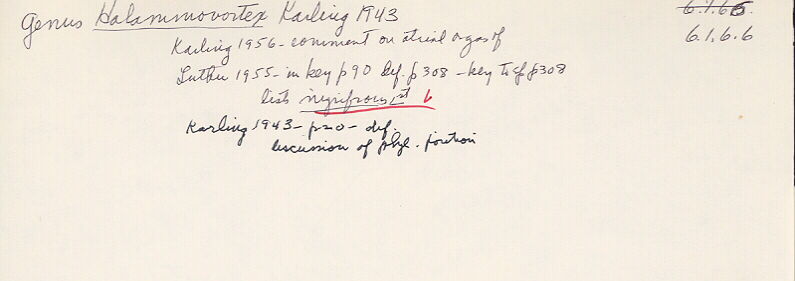 Genus Halammovortex Karling 1943
6.1.66
6.1.6.6
Karling 1956 - comment on atrial organs of
Luther 1955 - in key p90 def. p308 - key to spp p308
lists nigrifrons
Karling 1943 - p20 - def.
discussion of phyl. position